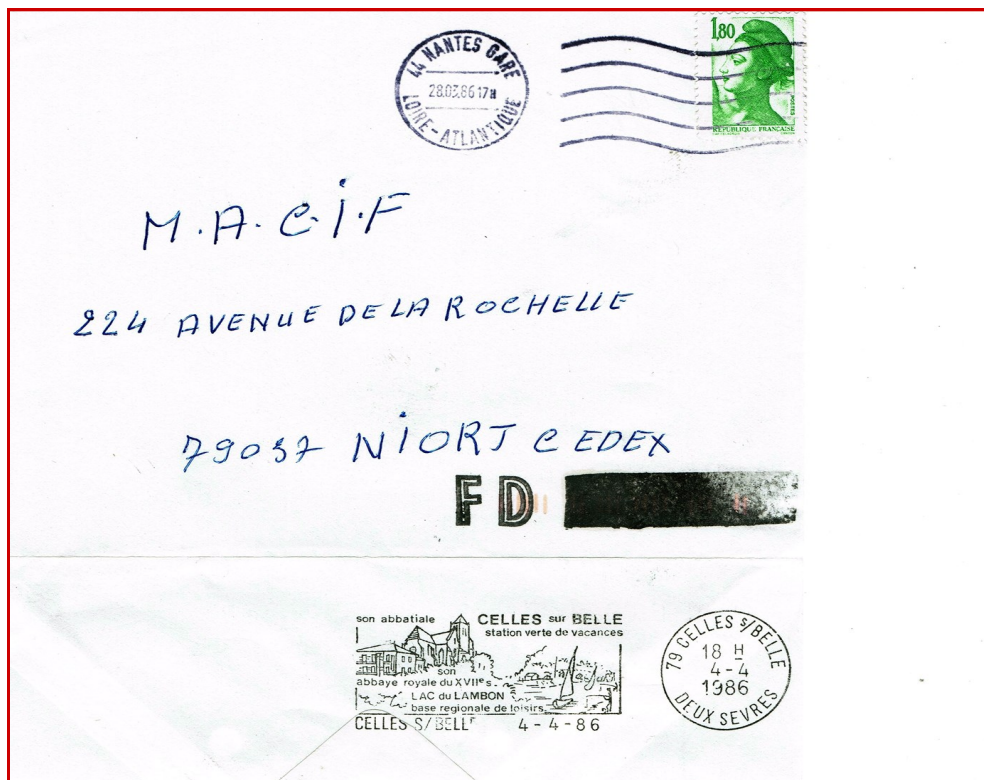 44 NANTES GARE
28.03.86 17H
LOIRE-ATLANTIQUE
1,80
POSTES
RÉPUBLIQUE FRANÇAISE
M.A.C.I.F
224 AVENUE DE LA ROCHELLE
79037 NIORT CEDEX
FD
son abbatiale CELLES sur BELLE
station verte de vacances
son
abbaye royale du XVIIe s.
LAC du LAMBON
base regionale de loisirs
CELLES S/BELLE 4-4-86
79 CELLES S/BELLE
18 H
4-4
1986
DEUX SEVRES